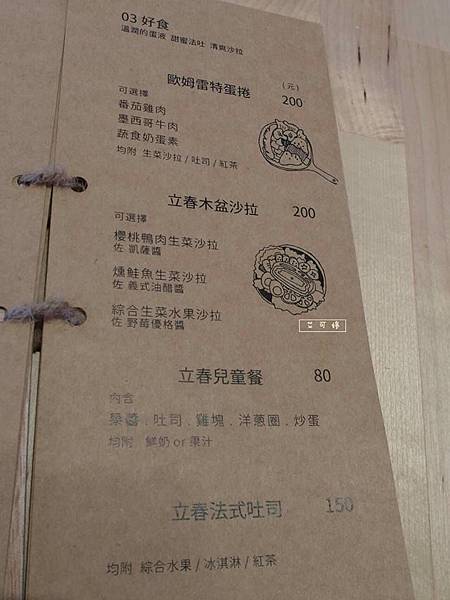 03 好食
溫潤的蛋液 甜蜜法吐 清爽沙拉
(元)
歐姆雷特蛋捲 200
可選擇
番茄雞肉
墨西哥牛肉
蔬食奶蛋素
均附 生菜沙拉/吐司/紅茶
立春木盆沙拉 200
可選擇
櫻桃鴨肉生菜沙拉
佐 凱薩醬
燻鮭魚生菜沙拉
佐 義式油醋醬
綜合生菜水果沙拉
佐 野莓優格醬
立春兒童餐 80
內含
桑醬.吐司.雞塊.洋蔥圈.炒蛋
均附 鮮奶or果汁
立春法式吐司 150
均附 綜合水果/冰淇淋/紅茶